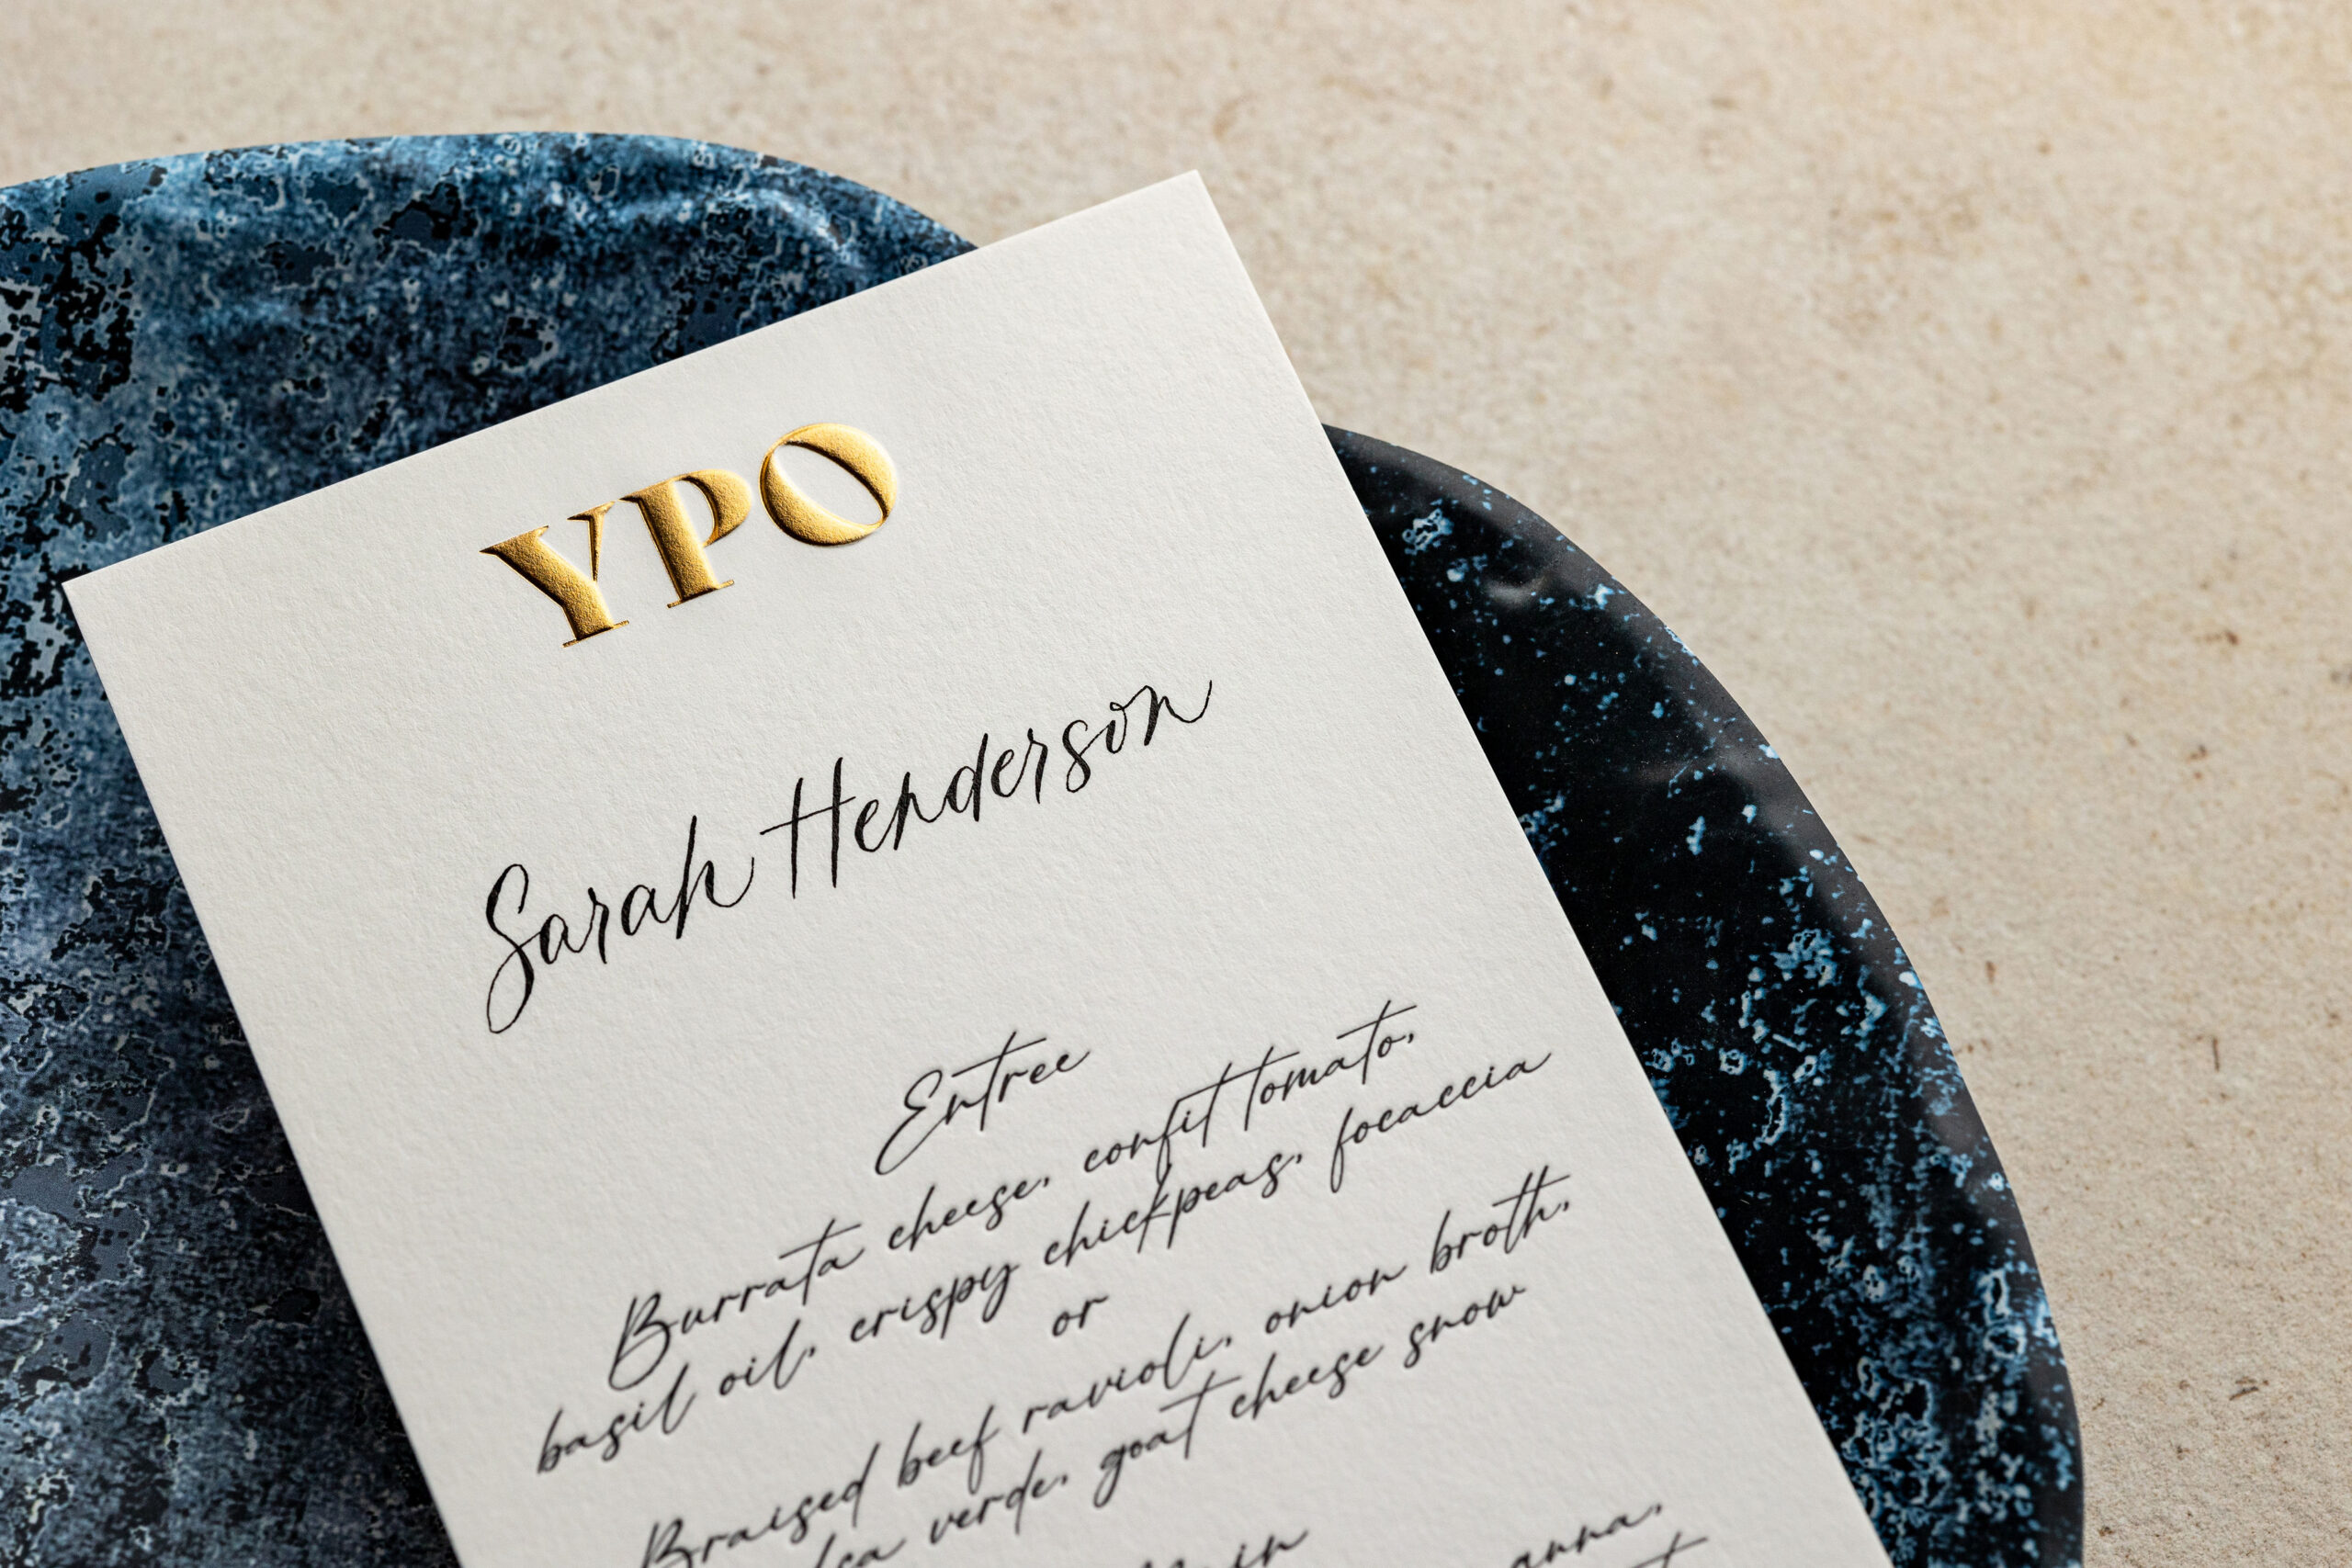 YPO
Sarah Henderson
Entree
Burrata cheese, confit tomato,
basil oil, crispy chickpeas, focaccia
or
Braised beef ravioli, onion broth,
verde, goat cheese snow